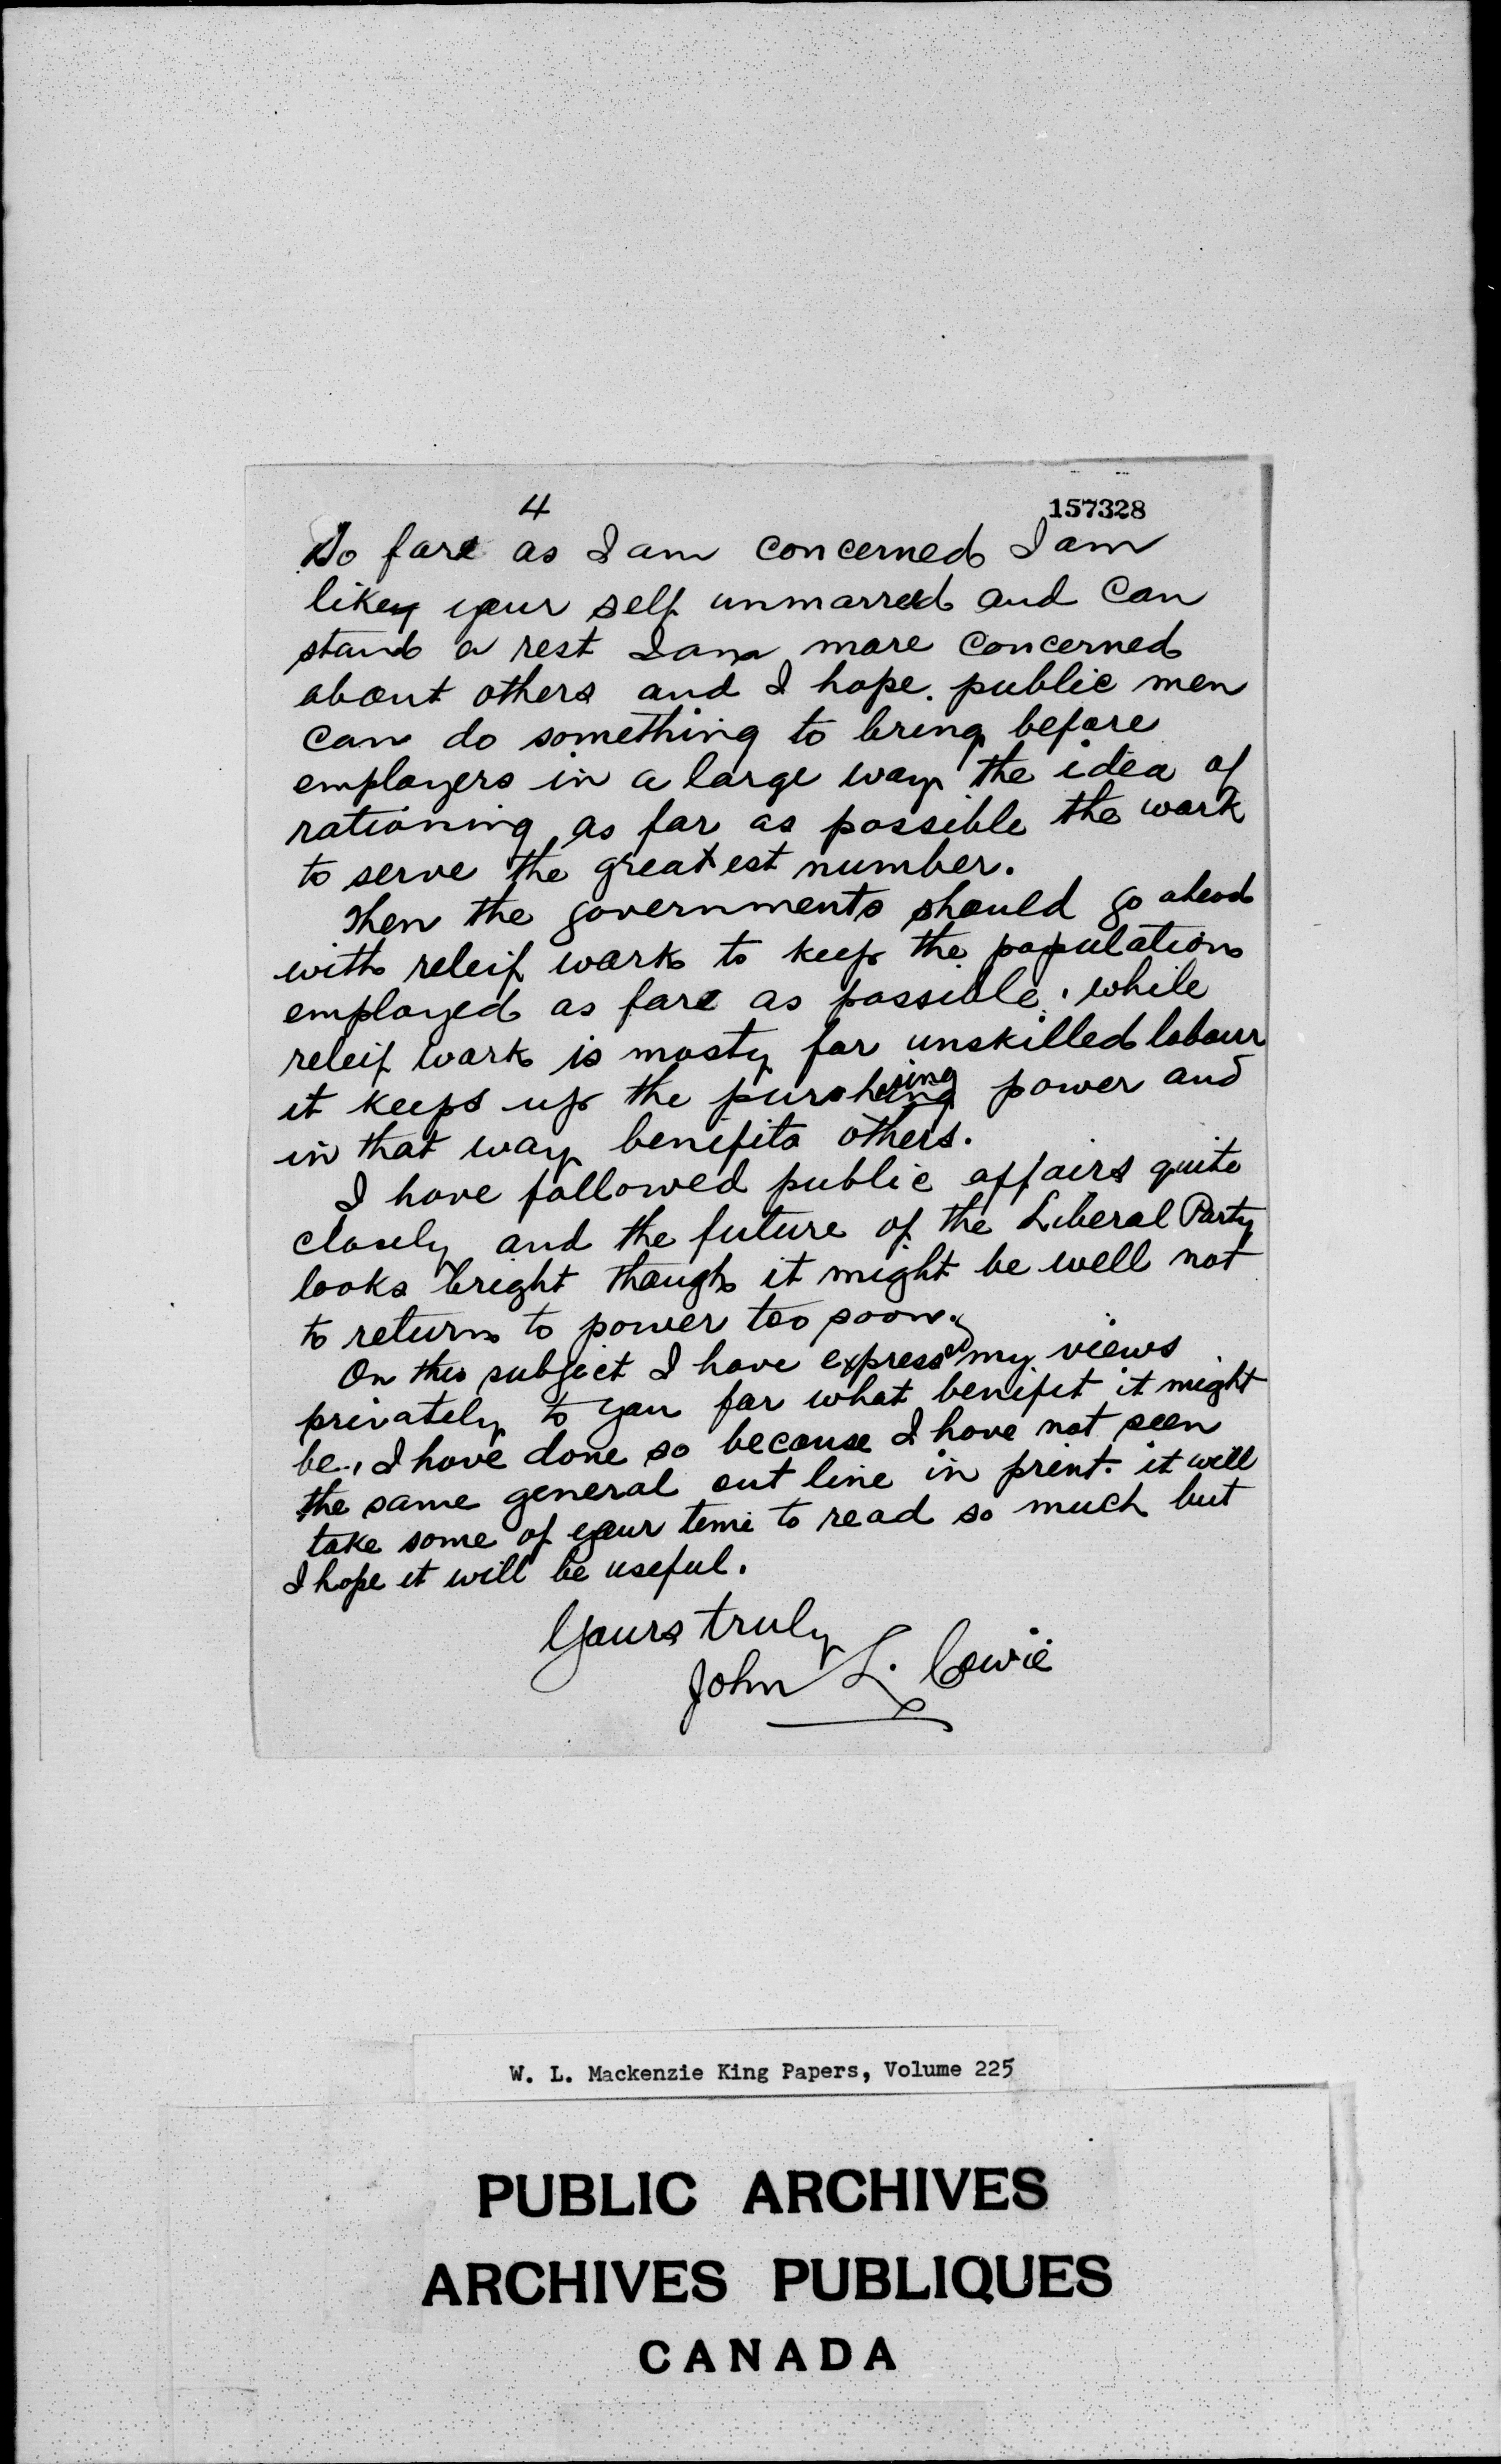 4
157328
So fare as I am concerned I am
like your self unmarred and can
stand a rest I am more concerned
about others and I hope. public men
can do something to bring before
employers in a large way the idea of
rationing as far as possible the work
to serve the greatest number.
Then the governments should go ahead
with releif work to keep the population
employed as fare as possible. while
releif work is mosty for unskilled labour
it keeps up the purchasing power and
in that way benifits others.
I have followed public affairs quite
closely and the future of the Liberal Party
looks bright though it might be well not
to return to power too soon.
On this subject I have expressed my views
privately to you for what benifit it might
be., I have done so because I have not seen
the same general out line in print. it will
take some of your time to read so much but
I hope it will be useful.
Yours truly
John L. Cowie
W. L. Mackenzie King Papers, Volume 225
PUBLIC ARCHIVES
ARCHIVES PUBLIQUES
CANADA